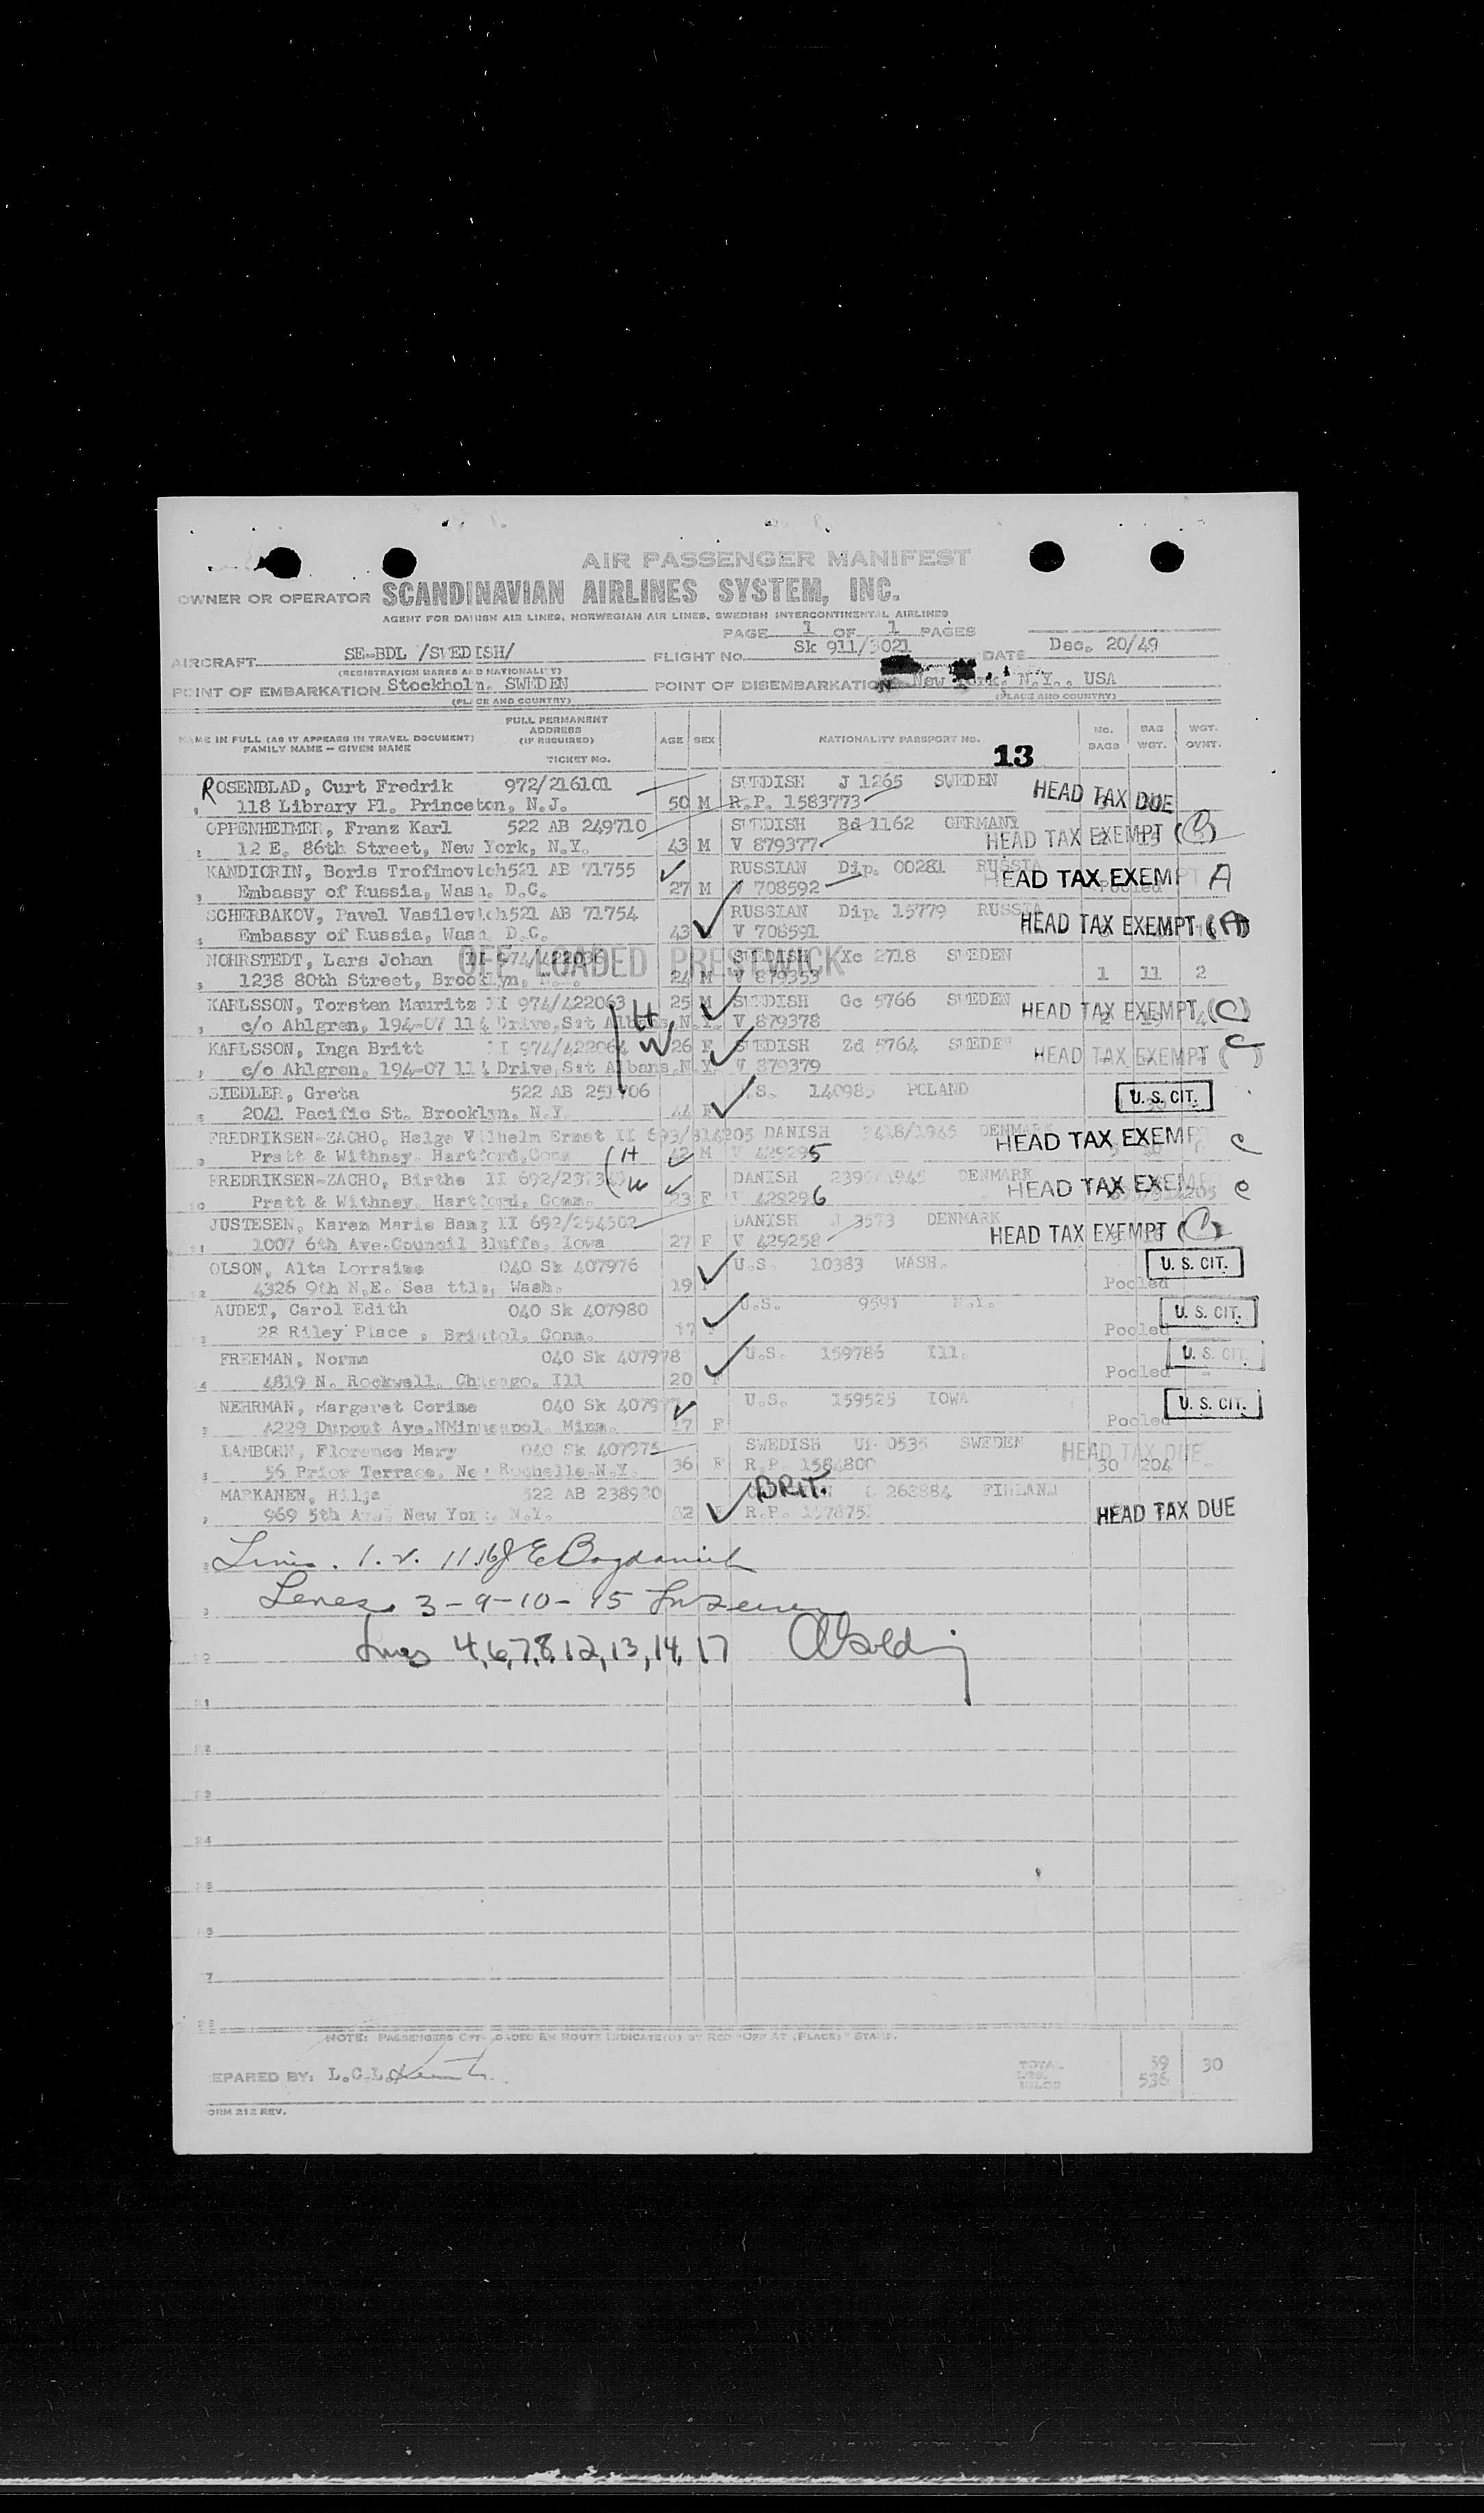 AIR PASSENGER MANIFEST
OWNER OR OPERATOR SCANDINAVIAN AIRLINES SYSTEM, INC.
AGENT FOR DANISH AIR LINES, NORWEGIAN AIR LINES, SWEDISH INTERCONTINENTAL AIRLINES
PAGE 1 OF 1 PAGES
AIRCRAFT SE-BDL /SWEDISH/ FLIGHT No. Sk 911/3021 DATE Dec. 20/49
(REGISTRATION MARKS AND NATIONALITY)
POINT OF EMBARKATION Stockholm, SWEDEN POINT OF DISEMBARKATION New York, N.Y., USA
(PLACE AND COUNTRY) (PLACE AND COUNTRY)
NAME IN FULL (AS IT APPEARS IN TRAVEL DOCUMENT) FAMILY NAME – GIVEN NAME FULL PERMANENT ADDRESS (IF REQUIRED) TICKET No. AGE SEX NATIONALITY PASSPORT NO. No. BAGS BAG WGT. WGT. OVNT.
13
ROSENBLAD, Curt Fredrik 972/216101 SWEDISH J 1265 SWEDEN HEAD TAX DUE
118 Library Pl. Princeton, N.J. 50 M R.P. 1583773
OPPENHEIMER, Franz Karl 522 AB 249710 SWEDISH Bd 1162 GERMANY HEAD TAX EXEMPT (B)
12 E. 86th Street, New York, N.Y. 43 M V 879377
KANDIORIN, Boris Trofimovich 521 AB 71755 RUSSIAN Dip. 00281 RUSSIA HEAD TAX EXEMPT A
Embassy of Russia, Wash. D.C. 27 M V 708592 Pooled
SCHERBAKOV, Pavel Vasilevich 521 AB 71754 RUSSIAN Dip. 15779 RUSSIA HEAD TAX EXEMPT (A)
Embassy of Russia, Wash. D.C. 43 V 708591
NOHRSTEDT, Lars Johan II 974/422036 SWEDISH Xc 2718 SWEDEN
OFF LOADED PRESTWICK
1238 80th Street, Brooklyn, 24 M V 879353 1 11 2
KARLSSON, Torsten Mauritz II 974/422063 25 M SWEDISH Gc 5766 SWEDEN HEAD TAX EXEMPT (C)
c/o Ahlgren, 194-07 114 Drive, Sst Albans, N.Y. H V 879378
KARLSSON, Inga Britt II 974/422064 W 26 F SWEDISH Zd 5764 SWEDEN HEAD TAX EXEMPT (C)
c/o Ahlgren, 194-07 114 Drive, Sst Albans, N.Y. V 879379
SIEDLER, Greta 522 AB 251706 U.S. 140985 POLAND U. S. CIT.
2041 Pacific St. Brooklyn, N.Y. 44 F
FREDRIKSEN-ZACHO, Helge Vilhelm Ernst II 693/314205 DANISH 2418/1945 DENMARK HEAD TAX EXEMPT C
Pratt & Withney, Hartford, Conn (H M V 429295
FREDRIKSEN-ZACHO, Birthe II 692/ DANISH DENMARK HEAD TAX EXEMPT C
Pratt & Withney, Hartford, Conn. (W 23 F V 429296
JUSTESEN, Karen Marie Bang II 692/254502 DANISH J 3573 DENMARK HEAD TAX EXEMPT (C)
1007 6th Ave. Council Bluffs, Iowa 27 F V 429258
OLSON, Alta Lorraine 040 Sk 407976 U.S. 10383 WASH. U. S. CIT.
4326 9th N.E. Sea ttle, Wash. 19 Pooled
AUDET, Carol Edith 040 Sk 407980 U.S. 9591 N.Y. U. S. CIT.
28 Riley Place, Bristol, Conn. 17 Pooled
FREEMAN, Norma 040 Sk 407978 U.S. 159786 Ill. U. S. CIT.
4819 N. Rockwell, Chicago, Ill 20 F Pooled
NEHRMAN, Margaret Corine 040 Sk U.S. 159525 IOWA U. S. CIT.
4229 Dupont Ave. NMinneapol. Minn. 17 F Pooled
LAMBORN, Florence Mary 040 Sk 407975 SWEDISH Uf 0535 SWEDEN HEAD TAX DUE
56 Prior Terrace, New Rochelle N.Y. 36 F R.P. 1584800 30 204
MARKANEN, Hilja 522 AB 238980 BRIT. 263884 FINLAND
969 5th Ave. New York, N.Y. R.P. HEAD TAX DUE
Lines. 1. 2. 11.16 J E Bogdanich
Lines 3-9-10-15
Lines 4,6,7,8,12,13,14,17
NOTE: PASSENGERS OFF-LOADED EN ROUTE INDICATE(D) BY RED "OFF AT (PLACE)" STAMP.
EPARED BY: L.C.L. TOTAL 59 30
LBS. 536
KILOS
ORM 212 REV.